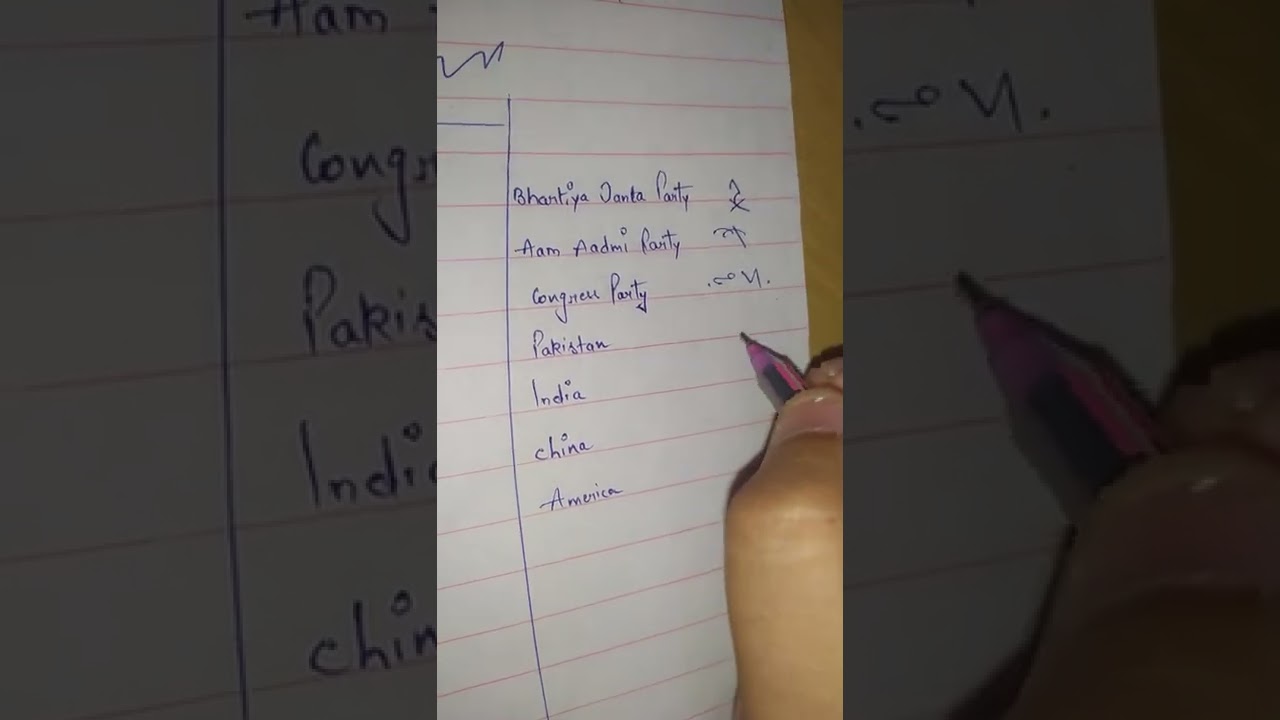 Bhartiya Janta Party
Aam Aadmi Party
Congress Party
Pakistan
India
china
America